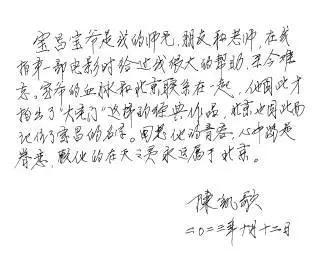 宝昌宝爷是我的师兄、朋友和老师，在我
拍第一部电影时给过我很大的帮助，至今难
忘。宝爷的血脉和北京联系在一起，他因此才
拍出了"大宅门"这样的经典作品，北京也因此而
记住了宝昌的名字。回想他的音容，心中
愿他的在天之灵永远属于北京。
陳凯歌
二〇二三年十月十二日